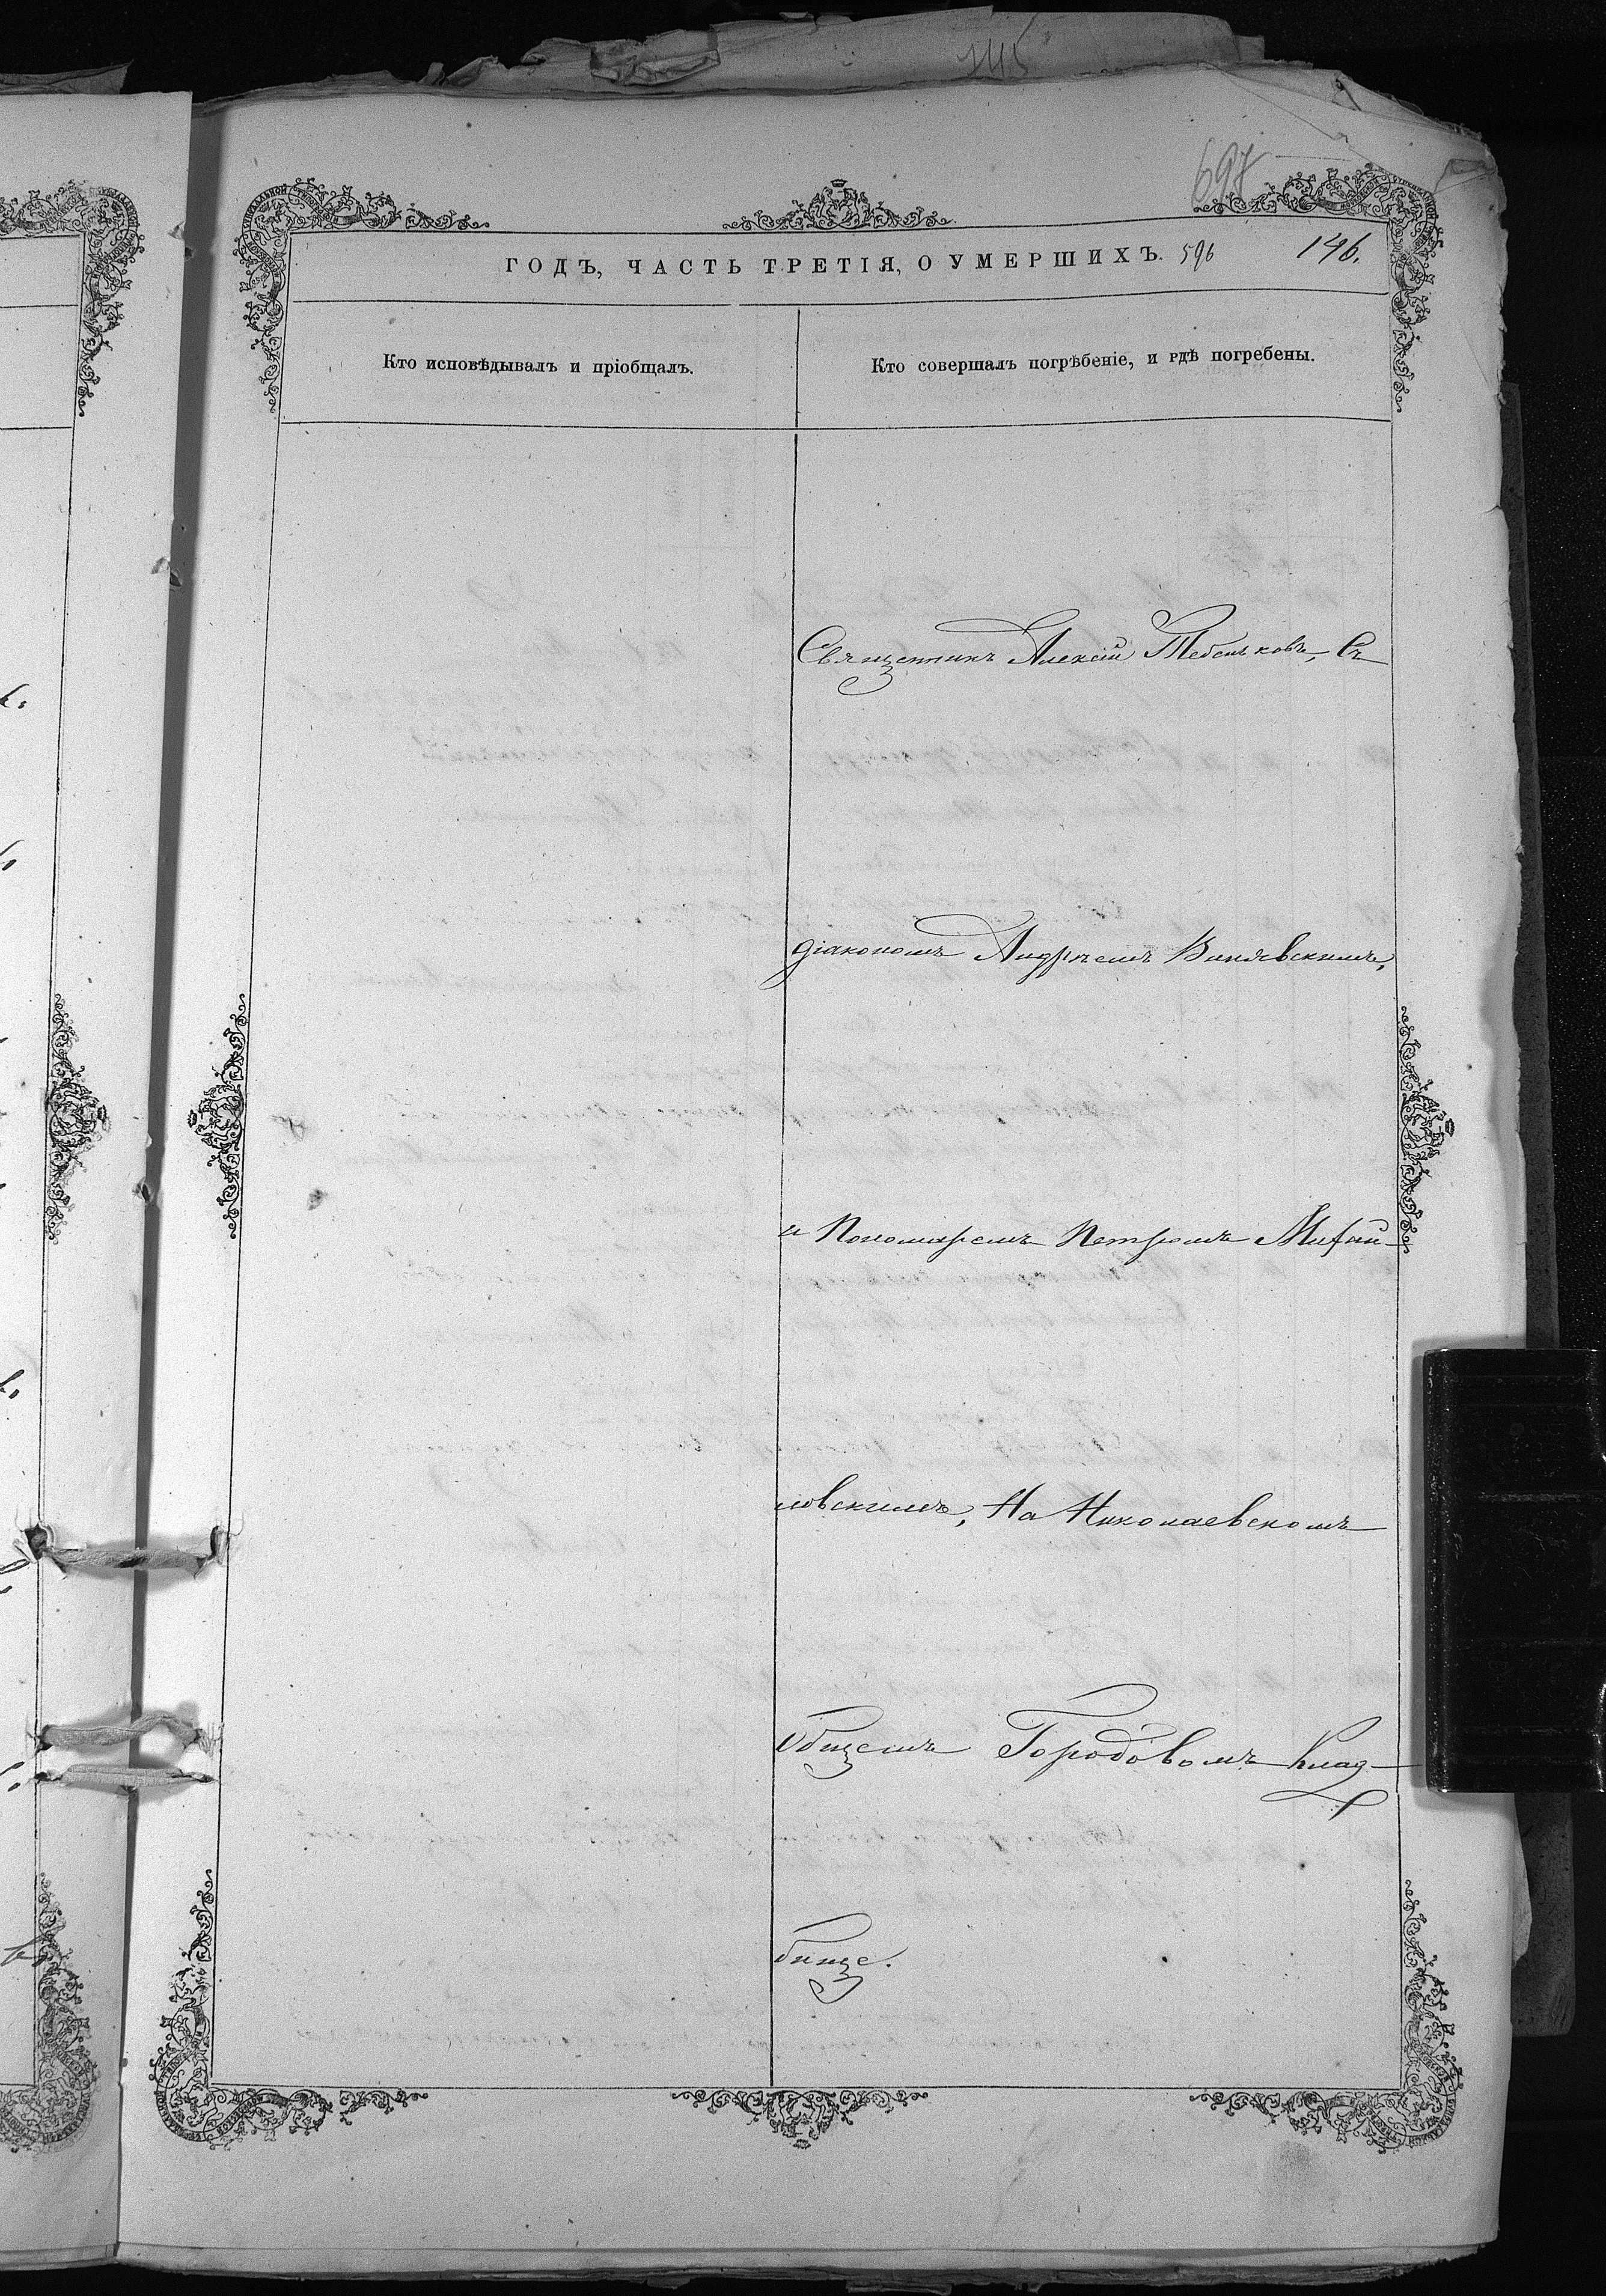 145
697
ГОДЪ, ЧАСТЬ ТРЕТІЯ, О УМЕРШИХЪ. 596 146.
Кто исповѣдывалъ и пріобщалъ.
Кто совершалъ погрѣбеніе, и гдѣ погребены.
Священникъ Алексій Тебеньковъ, Съ
діакономъ Андреемъ
и Пономаремъ Петромъ Михай-
ловскимъ, На Николаевскомъ
Общемъ Городовомъ Клад-
бище.